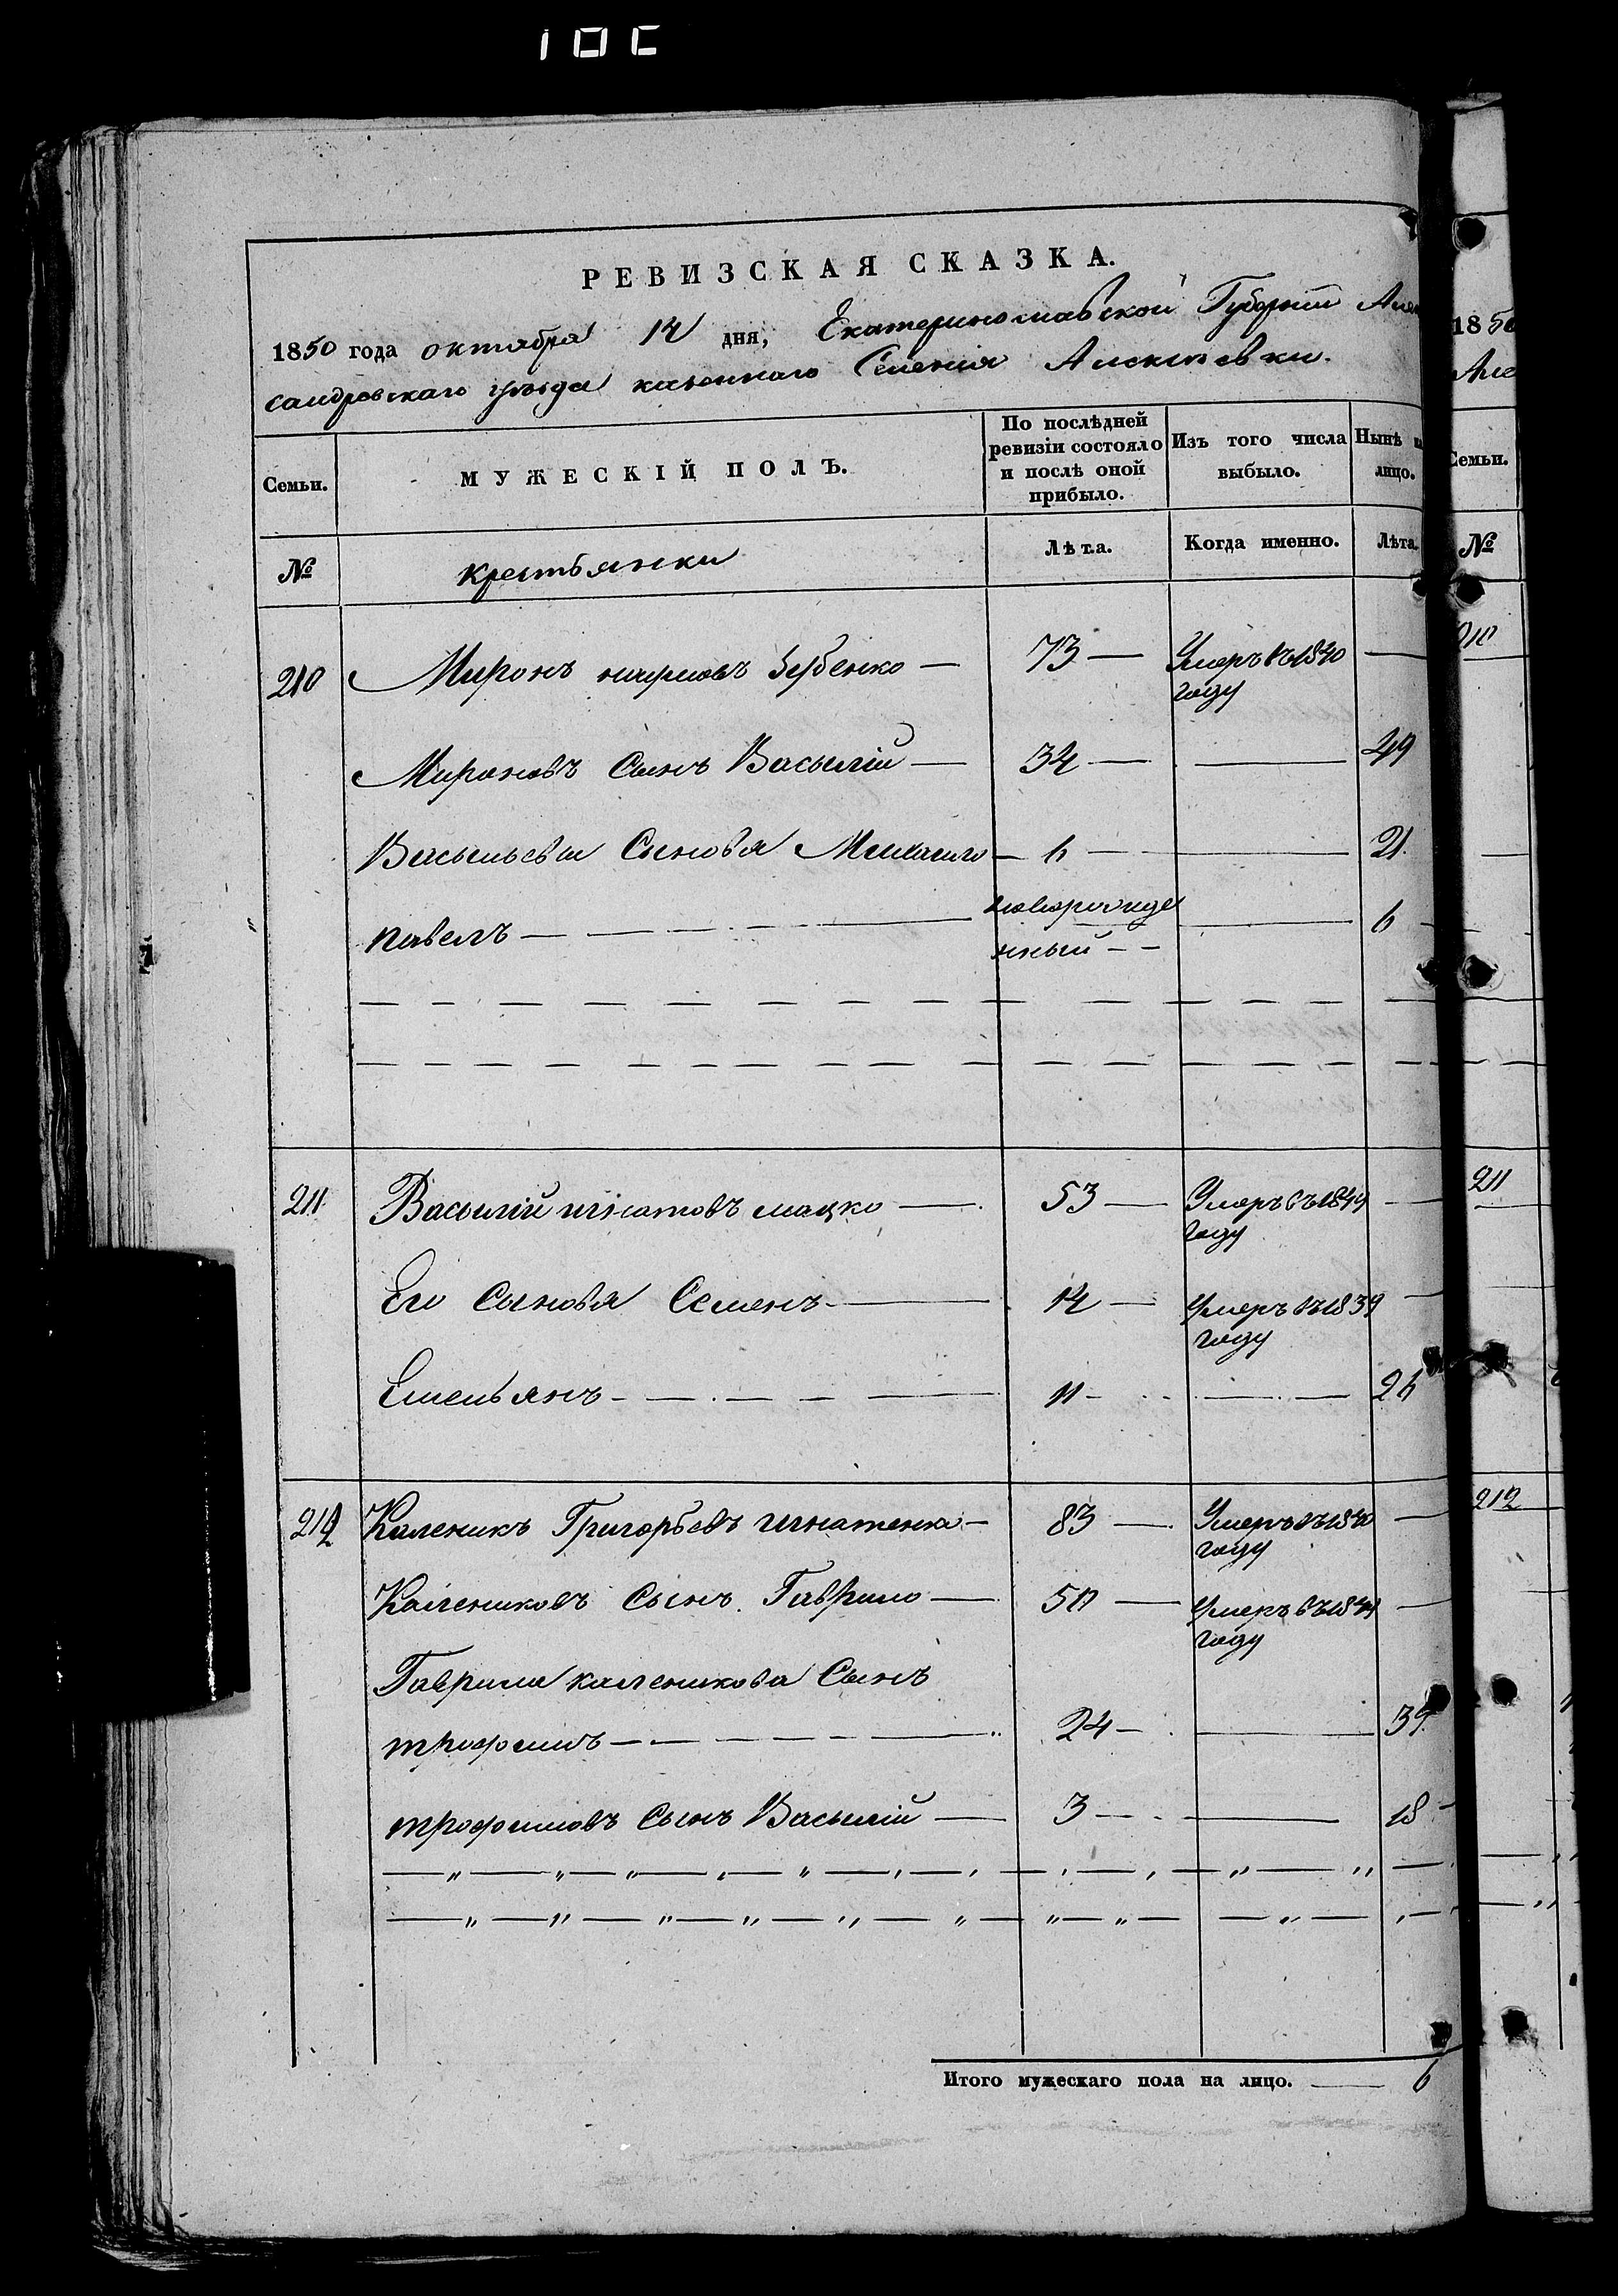 РЕВИЗСКАЯ СКАЗКА.
1850 года октября 14 дня, Екатеринославской Губернии Алек
сандровскаго уѣзда казеннаго Селенія Алексѣевки.
Семьи. МУЖЕСКІЙ ПОЛЪ. По послѣдней ревизіи состояло и послѣ оной прибыло. Изъ того числа выбыло. Нынѣ на лицо.
№ крестьянки Лѣта. Когда именно. Лѣта.
210 Миронъ наумовъ Зубенко — 73 — Умеръ въ 1840 году —
Мироновъ Сынъ Василій — 34 — — 49
Васильевы Сыновья Михаило — 6 — — 21
павелъ — новорожде нный — — 6
211 Василій игнатовъ мацко — 53 — Умеръ въ 1844 году —
Его Сыновья Семенъ — 14 — умеръ въ 1839 году —
Емельянъ — 11 — — 26
212 Каленикъ Григорьевъ игнатенко — 83 — Умеръ въ 1840 году —
Калениковъ Сынъ Гаврило — 50 — умеръ въ 1844 году —
Гаврила каленикова Сынъ
трофимъ — 24 — — 39
трофимовъ Сынъ Василій — 3 — — 18
Итого мужескаго пола на лицо. — 6
1850
Але
Семьи.
№
210
211
212